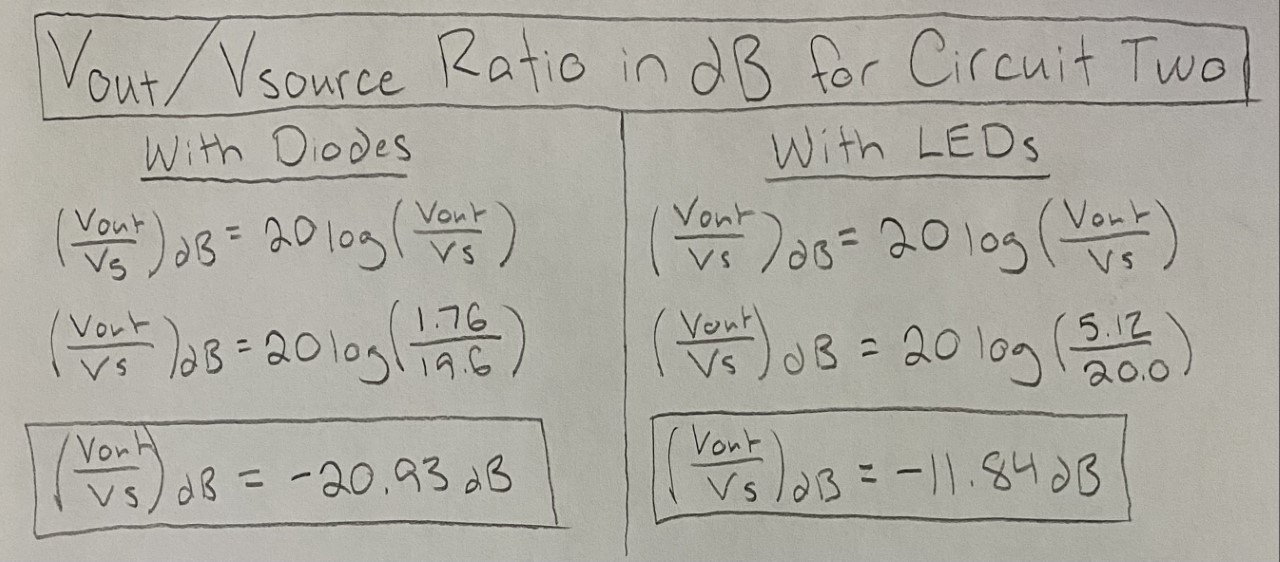 Vout/Vsource Ratio in dB for Circuit Two
With Diodes
(Vout/Vs)dB = 20 log(Vout/Vs)
(Vout/Vs)dB = 20 log(1.76/19.6)
(Vout/Vs)dB = -20.93 dB
With LEDs
(Vout/Vs)dB = 20 log(Vout/Vs)
(Vout/Vs)dB = 20 log(5.12/20.0)
(Vout/Vs)dB = -11.84 dB